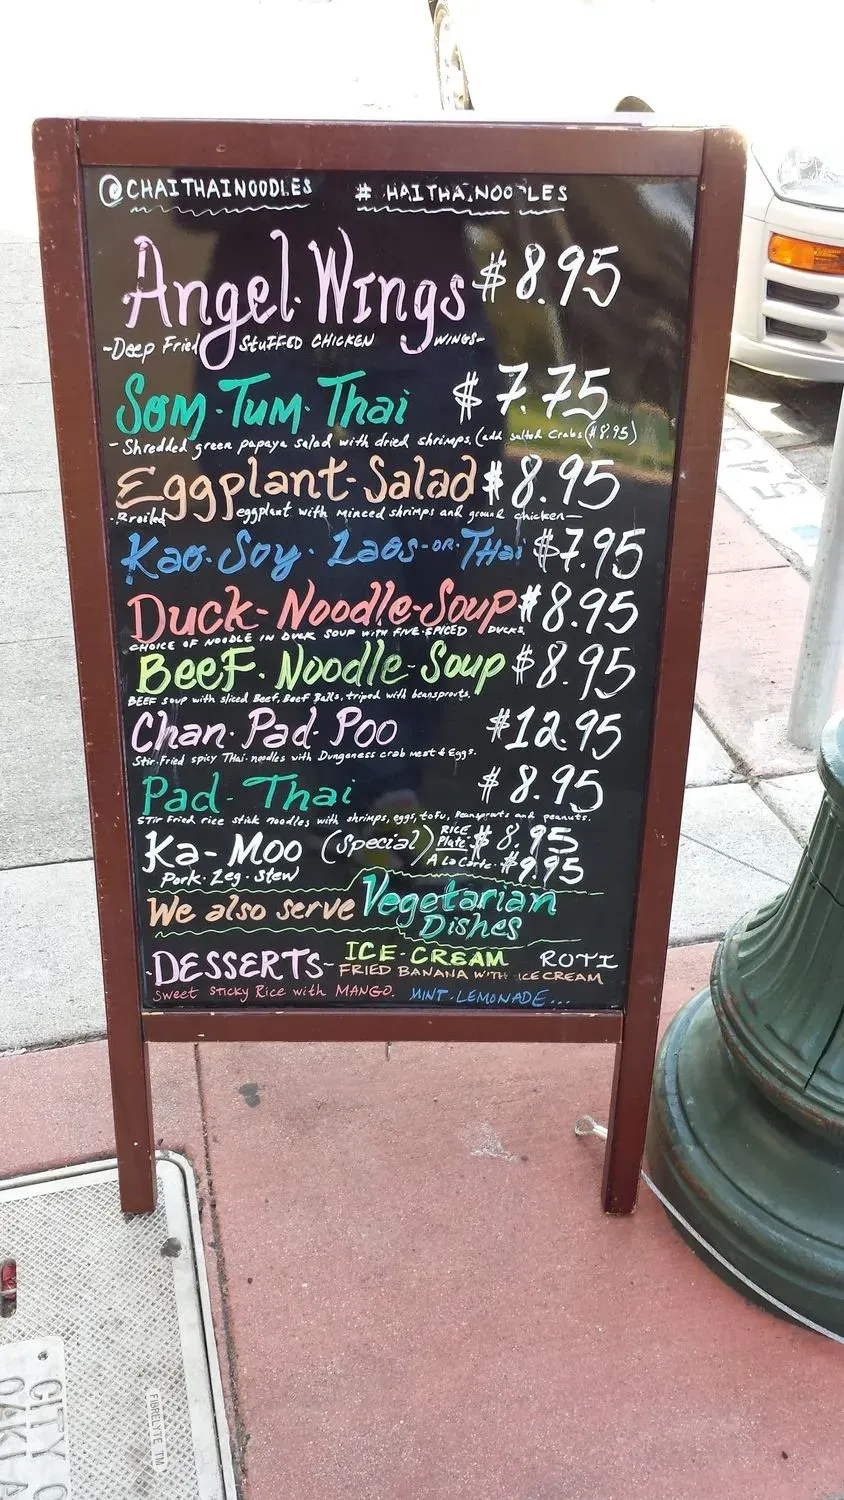 @CHAITHAINOODLES # HAITHAINOODLES
Angel Wings $8.95
-Deep Fried STUFFED CHICKEN WINGS-
Som·Tum·Thai $7.75
- Shredded green papaya salad with dried shrimps. (add salted Crabs ($8.95)
Eggplant-Salad $8.95
-Broiled eggplant with minced shrimps and ground chicken-
Kao·Soy·Laos-OR-THai $7.95
Duck-Noodle-Soup $8.95
CHOICE OF NOODLE IN DUCK SOUP WITH FIVE-SPICED DUCKS.
BEEF·Noodle-Soup $8.95
BEEF soup with sliced Beef, Beef Balls, triped with beansprouts.
Chan·Pad·Poo $12.95
Stir-Fried spicy THai-noodles with Dungeness crab meat & Eggs.
Pad-Thai $8.95
STir Fried rice stick noodles with shrimps, eggs, tofu, Beansprouts and peanuts.
Ka-Moo (Special) RICE Plate $8.95
Pork-Leg-stew A La Carte $9.95
We also serve Vegetarian
Dishes
-DESSERTS- ICE-CREAM ROTI
FRIED BANANA WITH ICE CREAM
Sweet STicky Rice with MANGO. MINT·LEMONADE...
FIBRELYTE TM
CITY O
OAKLA